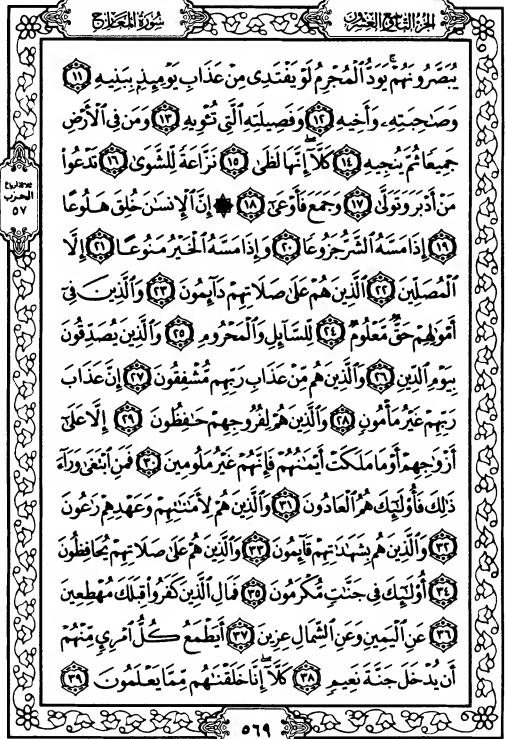 سُورَةُ المَعَارِجِ
الجُزْءُ التَّاسِعُ وَالعِشْرُونَ
يُبَصَّرُونَهُمْ ۚ يَوَدُّ ٱلْمُجْرِمُ لَوْ يَفْتَدِى مِنْ عَذَابِ يَوْمِئِذٍۭ بِبَنِيهِ ١١
وَصَٰحِبَتِهِۦ وَأَخِيهِ ١٢ وَفَصِيلَتِهِ ٱلَّتِى تُـْٔوِيهِ ١٣ وَمَن فِى ٱلْأَرْضِ
جَمِيعًا ثُمَّ يُنجِيهِ ١٤ كَلَّآ ۖ إِنَّهَا لَظَىٰ ١٥ نَزَّاعَةً لِّلشَّوَىٰ ١٦ تَدْعُوا۟
مَنْ أَدْبَرَ وَتَوَلَّىٰ ١٧ وَجَمَعَ فَأَوْعَىٰٓ ١٨ ۞ إِنَّ ٱلْإِنسَٰنَ خُلِقَ هَلُوعًا
١٩ إِذَا مَسَّهُ ٱلشَّرُّ جَزُوعًا ٢٠ وَإِذَا مَسَّهُ ٱلْخَيْرُ مَنُوعًا ٢١ إِلَّا
ٱلْمُصَلِّينَ ٢٢ ٱلَّذِينَ هُمْ عَلَىٰ صَلَاتِهِمْ دَآئِمُونَ ٢٣ وَٱلَّذِينَ فِىٓ
أَمْوَٰلِهِمْ حَقٌّ مَّعْلُومٌ ٢٤ لِّلسَّآئِلِ وَٱلْمَحْرُومِ ٢٥ وَٱلَّذِينَ يُصَدِّقُونَ
بِيَوْمِ ٱلدِّينِ ٢٦ وَٱلَّذِينَ هُم مِّنْ عَذَابِ رَبِّهِم مُّشْفِقُونَ ٢٧ إِنَّ عَذَابَ
رَبِّهِمْ غَيْرُ مَأْمُونٍ ٢٨ وَٱلَّذِينَ هُمْ لِفُرُوجِهِمْ حَٰفِظُونَ ٢٩ إِلَّا عَلَىٰٓ
أَزْوَٰجِهِمْ أَوْ مَا مَلَكَتْ أَيْمَٰنُهُمْ فَإِنَّهُمْ غَيْرُ مَلُومِينَ ٣٠ فَمَنِ ٱبْتَغَىٰ وَرَآءَ
ذَٰلِكَ فَأُو۟لَٰٓئِكَ هُمُ ٱلْعَادُونَ ٣١ وَٱلَّذِينَ هُمْ لِأَمَٰنَٰتِهِمْ وَعَهْدِهِمْ رَٰعُونَ
٣٢ وَٱلَّذِينَ هُم بِشَهَٰدَٰتِهِمْ قَآئِمُونَ ٣٣ وَٱلَّذِينَ هُمْ عَلَىٰ صَلَاتِهِمْ يُحَافِظُونَ
٣٤ أُو۟لَٰٓئِكَ فِى جَنَّٰتٍ مُّكْرَمُونَ ٣٥ فَمَالِ ٱلَّذِينَ كَفَرُوا۟ قِبَلَكَ مُهْطِعِينَ
٣٦ عَنِ ٱلْيَمِينِ وَعَنِ ٱلشِّمَالِ عِزِينَ ٣٧ أَيَطْمَعُ كُلُّ ٱمْرِئٍ مِّنْهُمْ
أَن يُدْخَلَ جَنَّةَ نَعِيمٍ ٣٨ كَلَّآ ۖ إِنَّا خَلَقْنَٰهُم مِّمَّا يَعْلَمُونَ ٣٩
الحزب
٥٧
٥٦٩